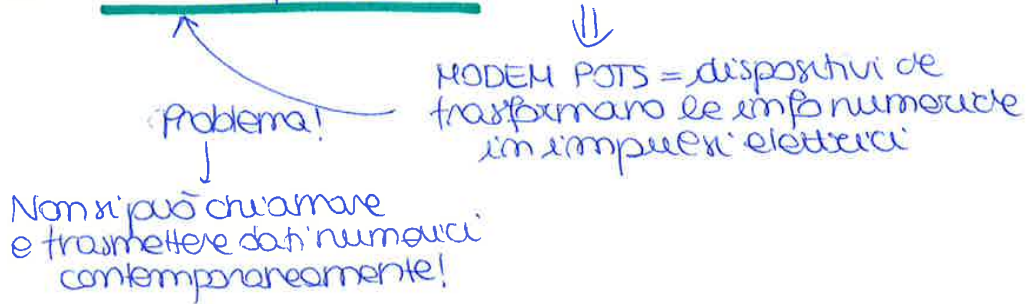 MODEM POTS = dispositivi che
trasformano le info numeriche
in impulsi elettrici
Problema!
Non si può chiamare
e trasmettere dati numerici
contemporaneamente!